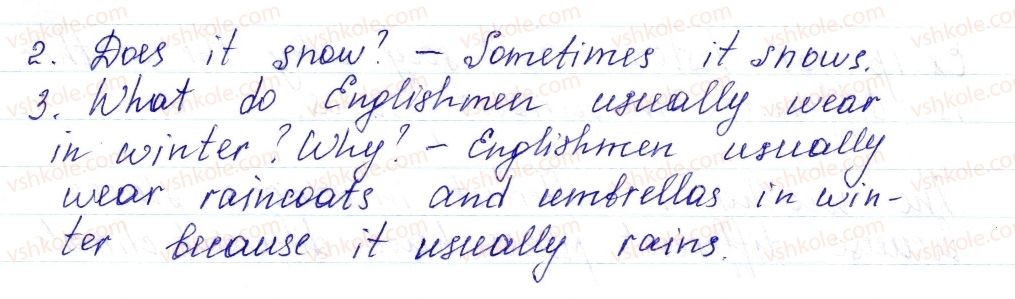 2. Does it snow? – Sometimes it snows.
3. What do Englishmen usually wear
in winter? Why? – Englishmen usually
wear raincoats and umbrellas in win-
ter because it usually rains.